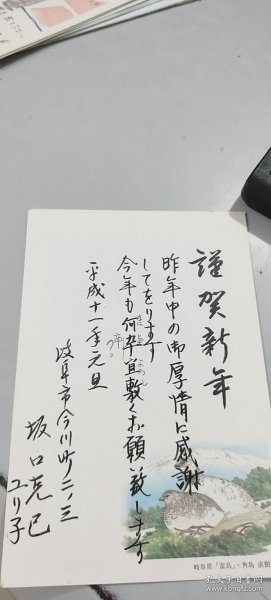 謹賀新年
昨年中の御厚情に感謝
してをります
今年も何卒宜敷くお願い致します
平成十一年元旦
岐阜市今川町二ノ三
坂口克己
ユリ子
岐阜県「雷鳥」・角島 直樹